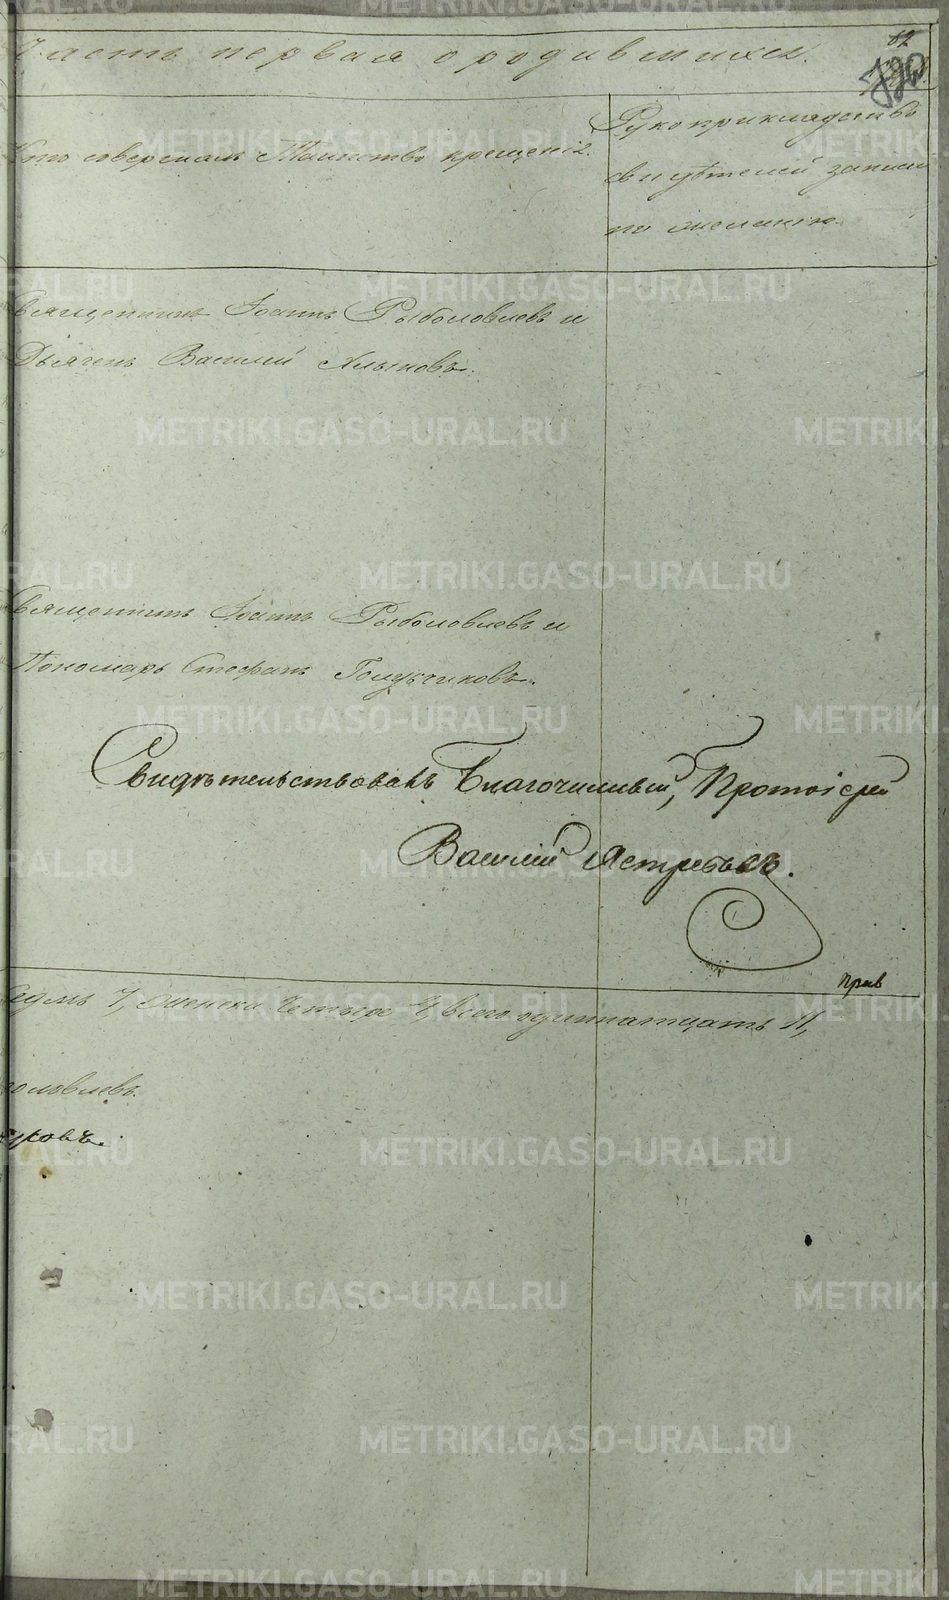 Часть первая о родившихся.
82
Кто совершалъ Таинство крещенія.
Рукоприкладство
свидѣтелей записи
по желанію.
Священникъ Іоаннъ Рыболовлевъ и
Дьячекъ Василій Хлыновъ.
Священникъ Іоаннъ Рыболовлевъ и
Пономарь Стефанъ Голубчиковъ.
Свидѣтельствовалъ Благочинный, Протоіерей
Василій Ястребовъ.
седмь 7, женска четыре 4, всего одиннатцать 11,
оловлевъ.
METRIKI.GASO-URAL.RU